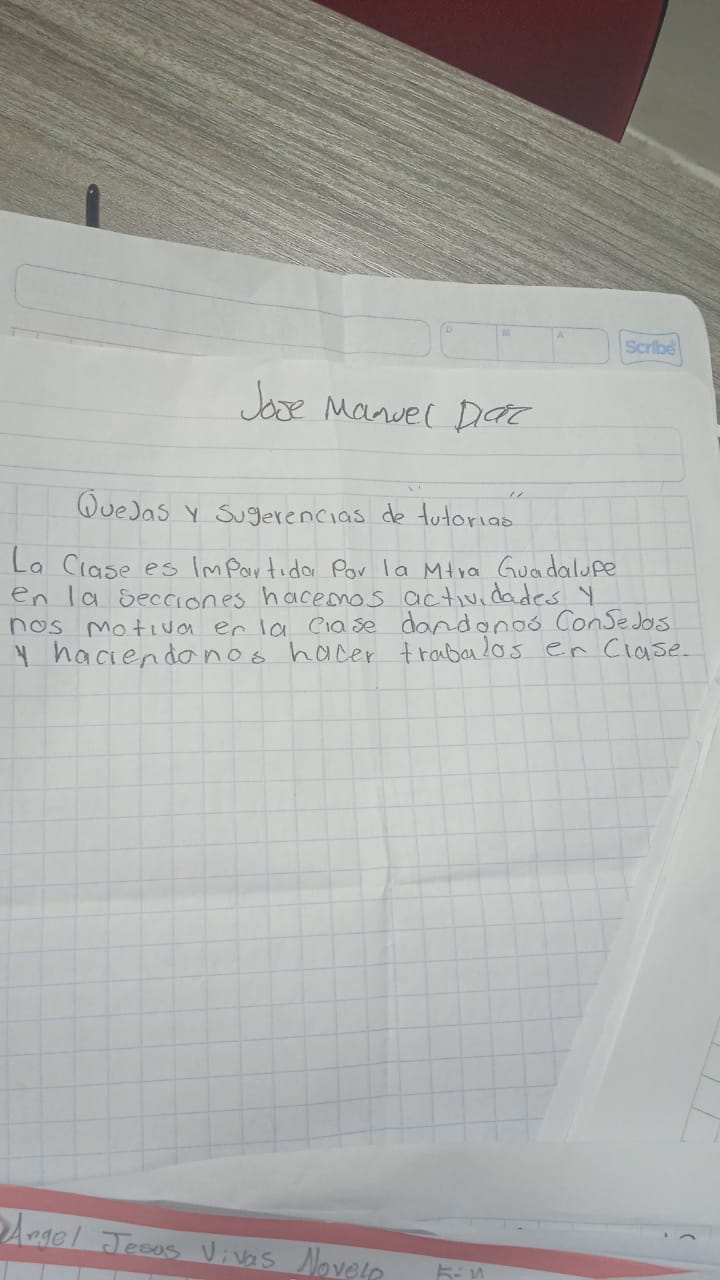 D M A
Scribe
Jose Manuel
Quejas y sugerencias de "tutorias"
La Clase es Impartida Por la Mtra Guadalupe
en la secciones hacemos actividades y
nos motiva en la clase dandonos ConseJos
y haciendonos hacer trabaJos en Clase.
Angel Jesus Vivas Novelo